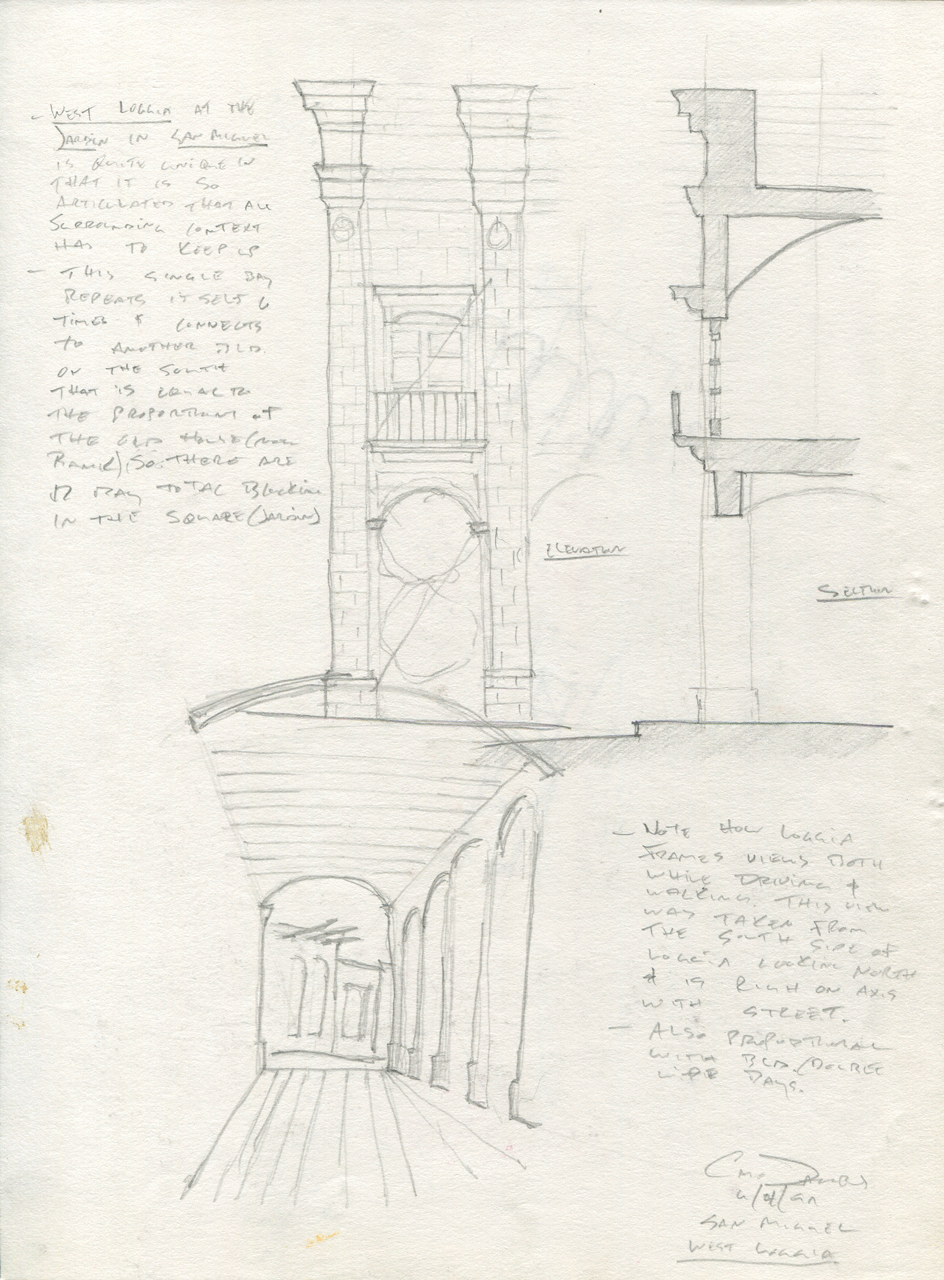 - WEST LOGGIA AT THE
JARDIN IN SAN MIGUEL
IS QUITE UNIQUE IN
THAT IT IS SO
ARTICULATED THAT ALL
SURROUNDING CONTEXT
HAS TO KEEP UP
- THIS SINGLE BAY
REPEATS IT SELF 6
TIMES & CONNECTS
TO ANOTHER BLD.
ON THE SOUTH
THAT IS EQUAL TO
THE PROPORTIONS OF
THE OLD HOUSE (NOW
BANK), SO THERE ARE
12 BAY TOTAL
IN THE SQUARE (JARDIN)
ELEVATION
SECTION
- NOTE HOW LOGGIA
FRAMES VIEWS BOTH
WHILE DRIVING &
WALKING. THIS VIEW
WAS TAKEN FROM
THE SOUTH SIDE OF
LOGGIA LOOKING NORTH
& IS RIGH ON AXIS
WITH STREET.
- ALSO PROPORTIONAL
WITH BLD.
BAYS.
SAN MIGUEL
WEST LOGGIA